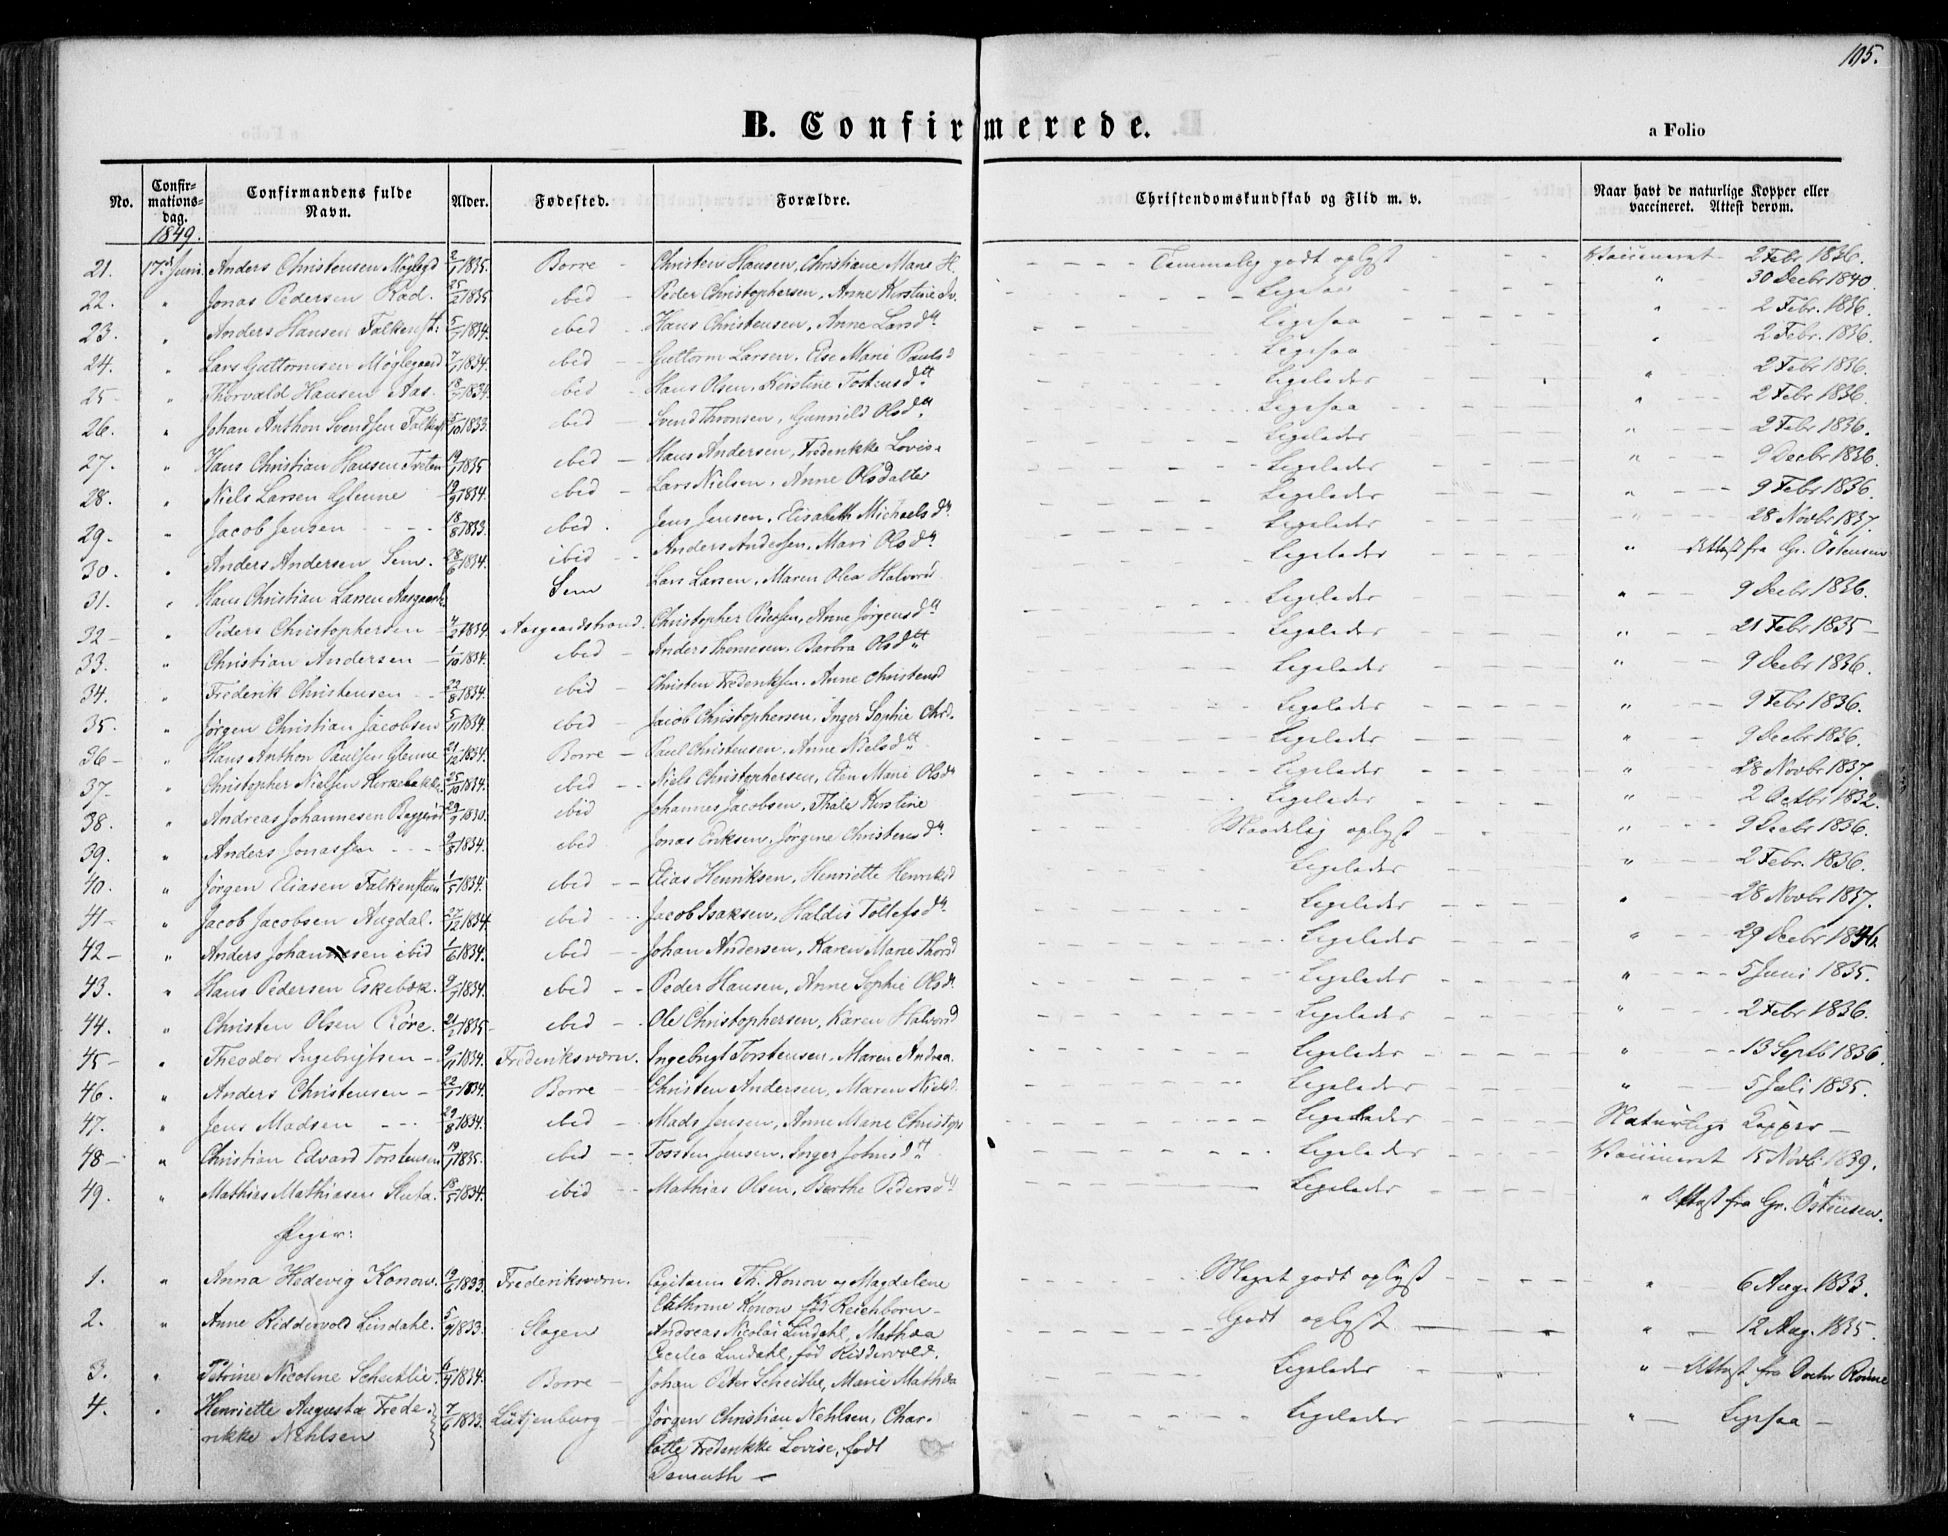 105.
B. Confirmerede.
a Folio
No. Confirmationsdag. Confirmandens fulde Navn. Alder. Fødested. Forældre. Christendomskundskab og Flid m. v. Naar havt de naturlige Kopper eller vaccineret. Attest derom.
1849.
21. 17de Juni Anders Christensen Møglegd 1835. Borre Christen Hansen, Christiane Marie H. Temmelig godt oplyst Vaccineret 2 Febr 1836.
22. " Jonas Pedersen Rød. 25/2 1835 ibid Peder Christophersen, Anne Kirstine Ligesaa " 30 Decbr 1840.
23. " Anders Hansen Falkenst: 1834. ibid Hans Christensen, Anne Larsdtt Ligesaa " 2 Febr. 1836.
24. " Lars Guttormsen Møglegaard 1834. ibid Guttorm Larsen, Else Marie Paulsd Ligesaa " 2 Febr. 1836.
25 " Thorvald Hansen Aas. 1834. ibid Hans Olsen, Kirstine Tostensdtt Ligeledes " 2 Febr 1836.
26. " Johan Anthon Svendsen Falkenst 5/10 1833. ibid Svend Thronsen, Gunnild Olsdtt Ligesaa " 2 Febr 1836.
27. " Hans Christian Hansen Freten 1835 ibid Hans Andersen, Frederikke Lovise Ligeledes " 2 Febr 1836.
28. " Niels Larsen Glenne 19/9 1834. ibid Lars Nielsen, Anne Olsdatter Ligeledes " 9 Decbr 1836.
29. " Jacob Jensen 18/8 1833. ibid. Jens Jensen, Elisabeth Michaelsdtt Ligeledes " 9 Febr 1836.
30. " Anders Andersen Sem. 28/6 1834. ibid Anders Andersen, Mari Olsdtt Ligeledes " 28 Novbr 1837.
31. " Hans Christian Larsen Sem Lars Larsen, Maren Olea Halvorsd Ligeledes " Attest fra Gr. Östensen
32 " Peders Christophersen 4/2 1834. Aasgaardstrand. Christopher Pedersen, Anne Jørgensdtt Ligeledes " 9 Decbr 1836.
33. " Christian Andersen 1/10 1834. ibid Anders Thomesen, Barbra Olsdtt Ligeledes " 21 Febr 1835
34. " Frederik Christensen 22/8 1834. ibid Christen Frederiksen, Anne Christensd Ligeledes " 9 Decbr 1836.
35. " Jørgen Christian Jacobsen 5/11 1834. ibid Jacob Christophersen, Inger Sophie Chrd. Ligeledes " 9 Febr 1836.
36 " Hans Anthon Paulsen Glenne 21/12 1834. Borre Paul Christensen, Anne Nielsdtt Ligeledes " 9 Decbr 1836.
37. " Christopher Nielsen Kirkebakke 25/10 1834. ibid Niels Christophersen, Elen Marie Olsdtt Ligeledes " 28 Novbr 1837.
38. " Andreas Johannesen 1830. ibid Johannes Jacobsen, Thale Kirstine Ligeledes " 2 Octbr 1832.
39. " Anders Jonassen 9/8 1834. ibid Jonas Eriksen, Jørgine Christensdtt Maadelig oplyst " 9 Decbr 1836.
40. " Jørgen Eliasen Falkensteen 1/5 1834. ibid Elias Henriksen, Henriette Henriksd Ligeledes " 2 Febr. 1836.
41 " Jacob Jacobsen Augdal. 27/12 1834. ibid Jacob Isaksen, Haldis Tollefsdtt Ligeledes " 28 Novbr 1837.
42 " Anders Johannesen ibid 1/6 1834. ibid Johan Andersen, Karen Marie Thorsd Ligeledes " 29 Decbr 1846.
43. " Hans Pedersen Eskebæk. 1834. ibid Peder Hansen, Anne Sophie Olsdtt Ligeledes " 5 Juni 1835.
44. " Christen Olsen Røre. 21/2 1835 ibid Ole Christophersen, Karen Halvorsd Ligeledes " 2 Febr 1836.
45 " Theodor Ingebrigtsen 1834. Frederiksværn. Ingebrigt Torstensen, Maren Andrea. Ligeledes " 13 Septb 1836.
46. " Anders Christensen 1834. Borre Christen Andersen, Maren Nielsd. Ligeledes " 5 Juli 1835.
47. " Jens Madsen 29/8 1834. ibid Mads Jensen, Anne Marie Christophs Ligeledes Naturlige Kopper
48 " Christian Edvard Torstensen 19/1 1835. ibid Tosten Jensen, Inger Johnsdtt Ligeledes Vaccineret 15 Novb. 1839.
49. " Mathias Mathiasen 1834. ibid Mathias Olsen, Berthe Pedersdtt Ligeledes " Attest fra Gr. Östensen.
Piger:
1. " Anna Hedevig Konow. 1833. Frederiksværn. Capitaine Th. Konow og Magdalene Meget godt oplyst " 6 Aug. 1833.
Cathrine Konow fød Reichborn
2. " Anne Riddervold Lindahl. 5/9 1833. Slagen Andreas Nicolai Lindahl, Mathea Godt oplyst " 12 Aug. 1835.
Cecilia Lindahl, fød Riddervold.
3. " Petrine Nicoline Scheitlie. 1834. Borre Johan Peter Scheitlie, Marie Mathea Ligeledes " Attest fra Doctor Rönne
4. " Henriette Augusta Frede- 7/6 1833. Lütjenburg Jørgen Christian Nehlsen, Char- Ligeledes " Ligesaa
rikke Nehlsen lotte Frederikke Lovise, født
Demuth